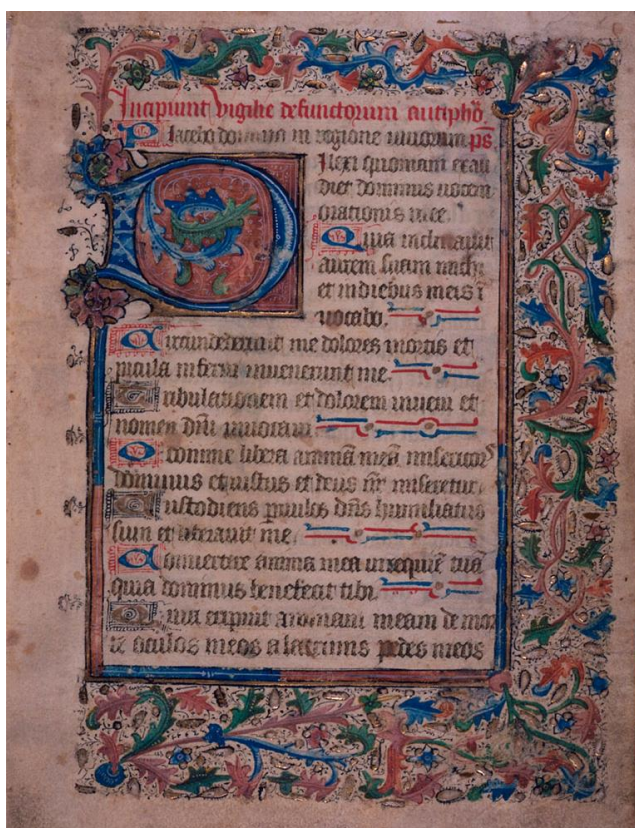 Incipiunt vigilie defunctorum antiphō.
Placebo domino in regione viuorum ps
Dilexi quoniam exau
diet dominus vocem
orationis mee.
Quia inclinauit
aurem suam michi
et in diebus meis ī
uocabo.
Circumdederunt me dolores mortis et
pericula inferni inuenerunt me.
Tribulationem et dolorem inueni et
nomen dn̄i inuocaui
O domine libera animā meā misericors
dominus et iustus et deus nr̄ miseretur.
Custodiens paruulos dn̄s humiliatus
sum et liberauit me.
Conuertere anima mea in requiē tuā
quia dominus benefecit tibi.
Quia eripuit animam meam de mor
te oculos meos a lacrimis pedes meos